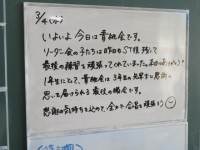 3/4(火)
いよいよ今日は青桃会です。
リーダー会の子たちは昨日もST後残って
最後の練習を頑張ってくれていました。
1年生にとって、青桃会は3年生の先輩方に感謝の
思いを届けられる最後の機会です。
感謝の気持ちを込めて、全力で合唱を頑張ろう